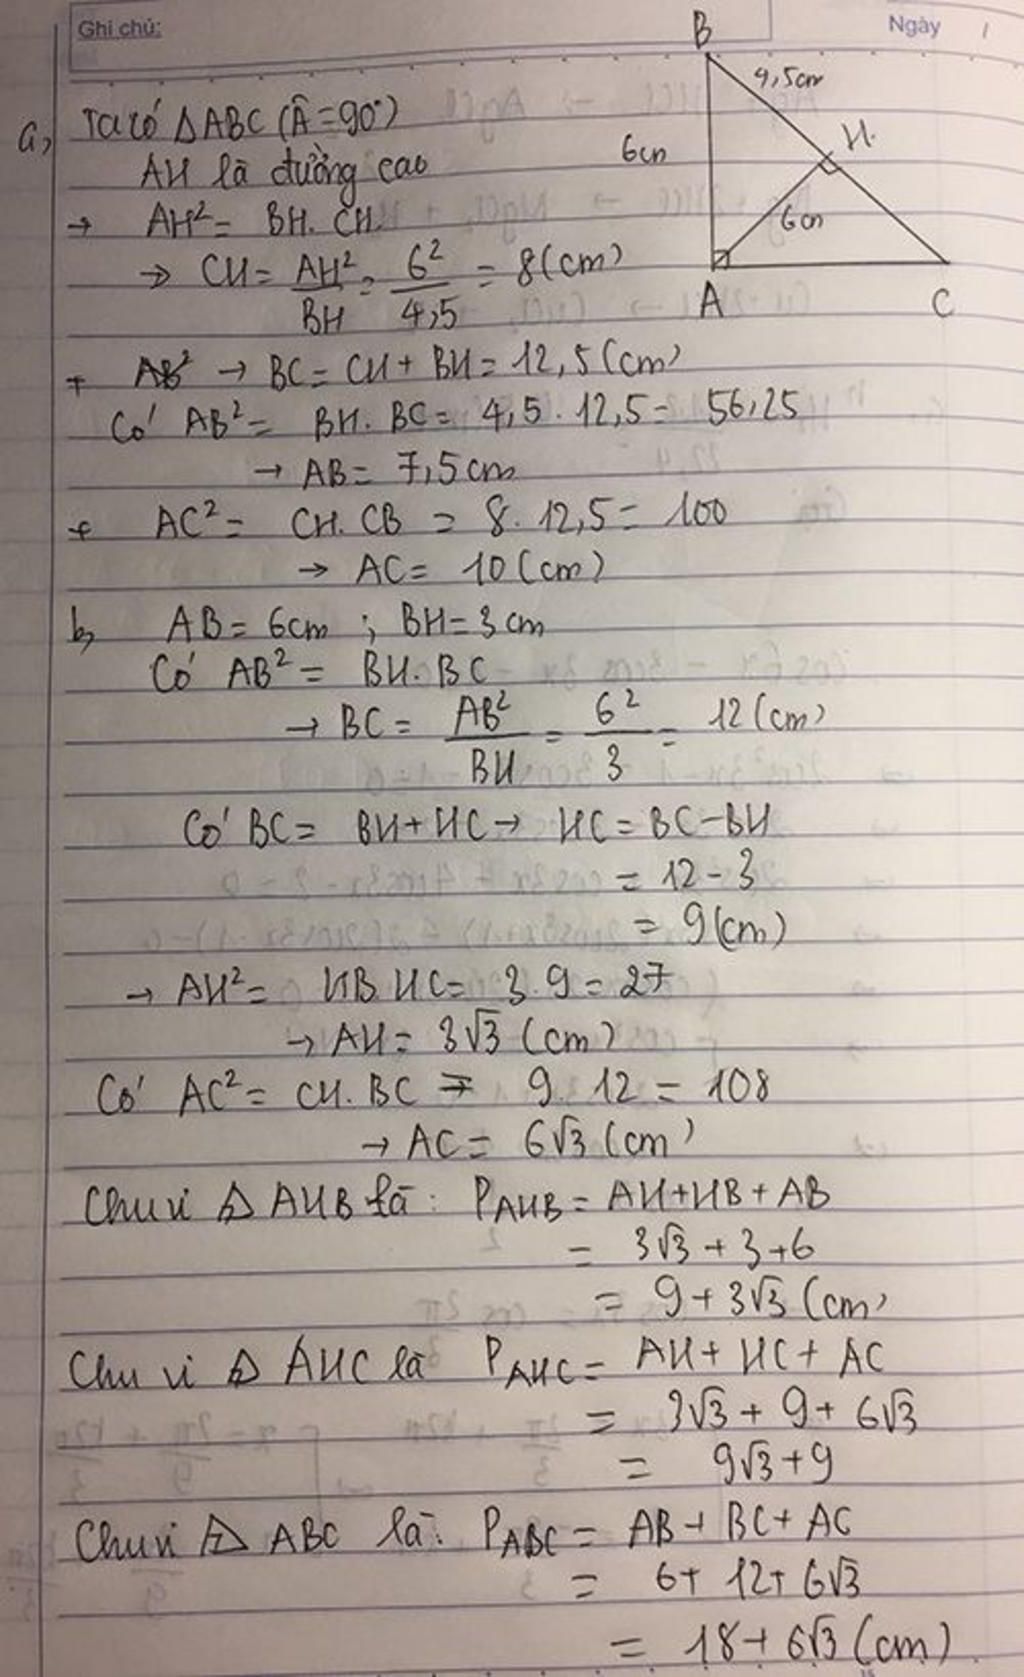 Ghi chú:
Ngày /
B
4,5cm
H.
6cm
6cm
A
C
a, Ta có ΔABC (Â=90°)
AH là đường cao
→ AH² = BH. CH
→ CH = AH²/BH = 6²/4,5 = 8(cm)
+ AB² → BC = CH + BH = 12,5(cm)
Có AB² = BH. BC = 4,5 . 12,5 = 56,25
→ AB = 7,5cm
+ AC² = CH. CB = 8. 12,5 = 100
→ AC = 10 (cm)
b, AB = 6cm ; BH = 3cm
Có AB² = BH. BC
→ BC = AB²/BH = 6²/3 = 12 (cm)
Có BC = BH + HC → HC = BC - BH
= 12 - 3
= 9(cm)
→ AH² = HB. HC = 3. 9 = 27
→ AH = 3√3 (cm)
Có AC² = CH. BC = 9. 12 = 108
→ AC = 6√3 (cm)
Chu vi Δ AHB là: P_AHB = AH+HB + AB
= 3√3 + 3 + 6
= 9 + 3√3 (cm)
Chu vi Δ AHC là P_AHC = AH + HC + AC
= 3√3 + 9 + 6√3
= 9√3 + 9
Chu vi Δ ABC là: P_ABC = AB + BC + AC
= 6 + 12 + 6√3
= 18 + 6√3 (cm)